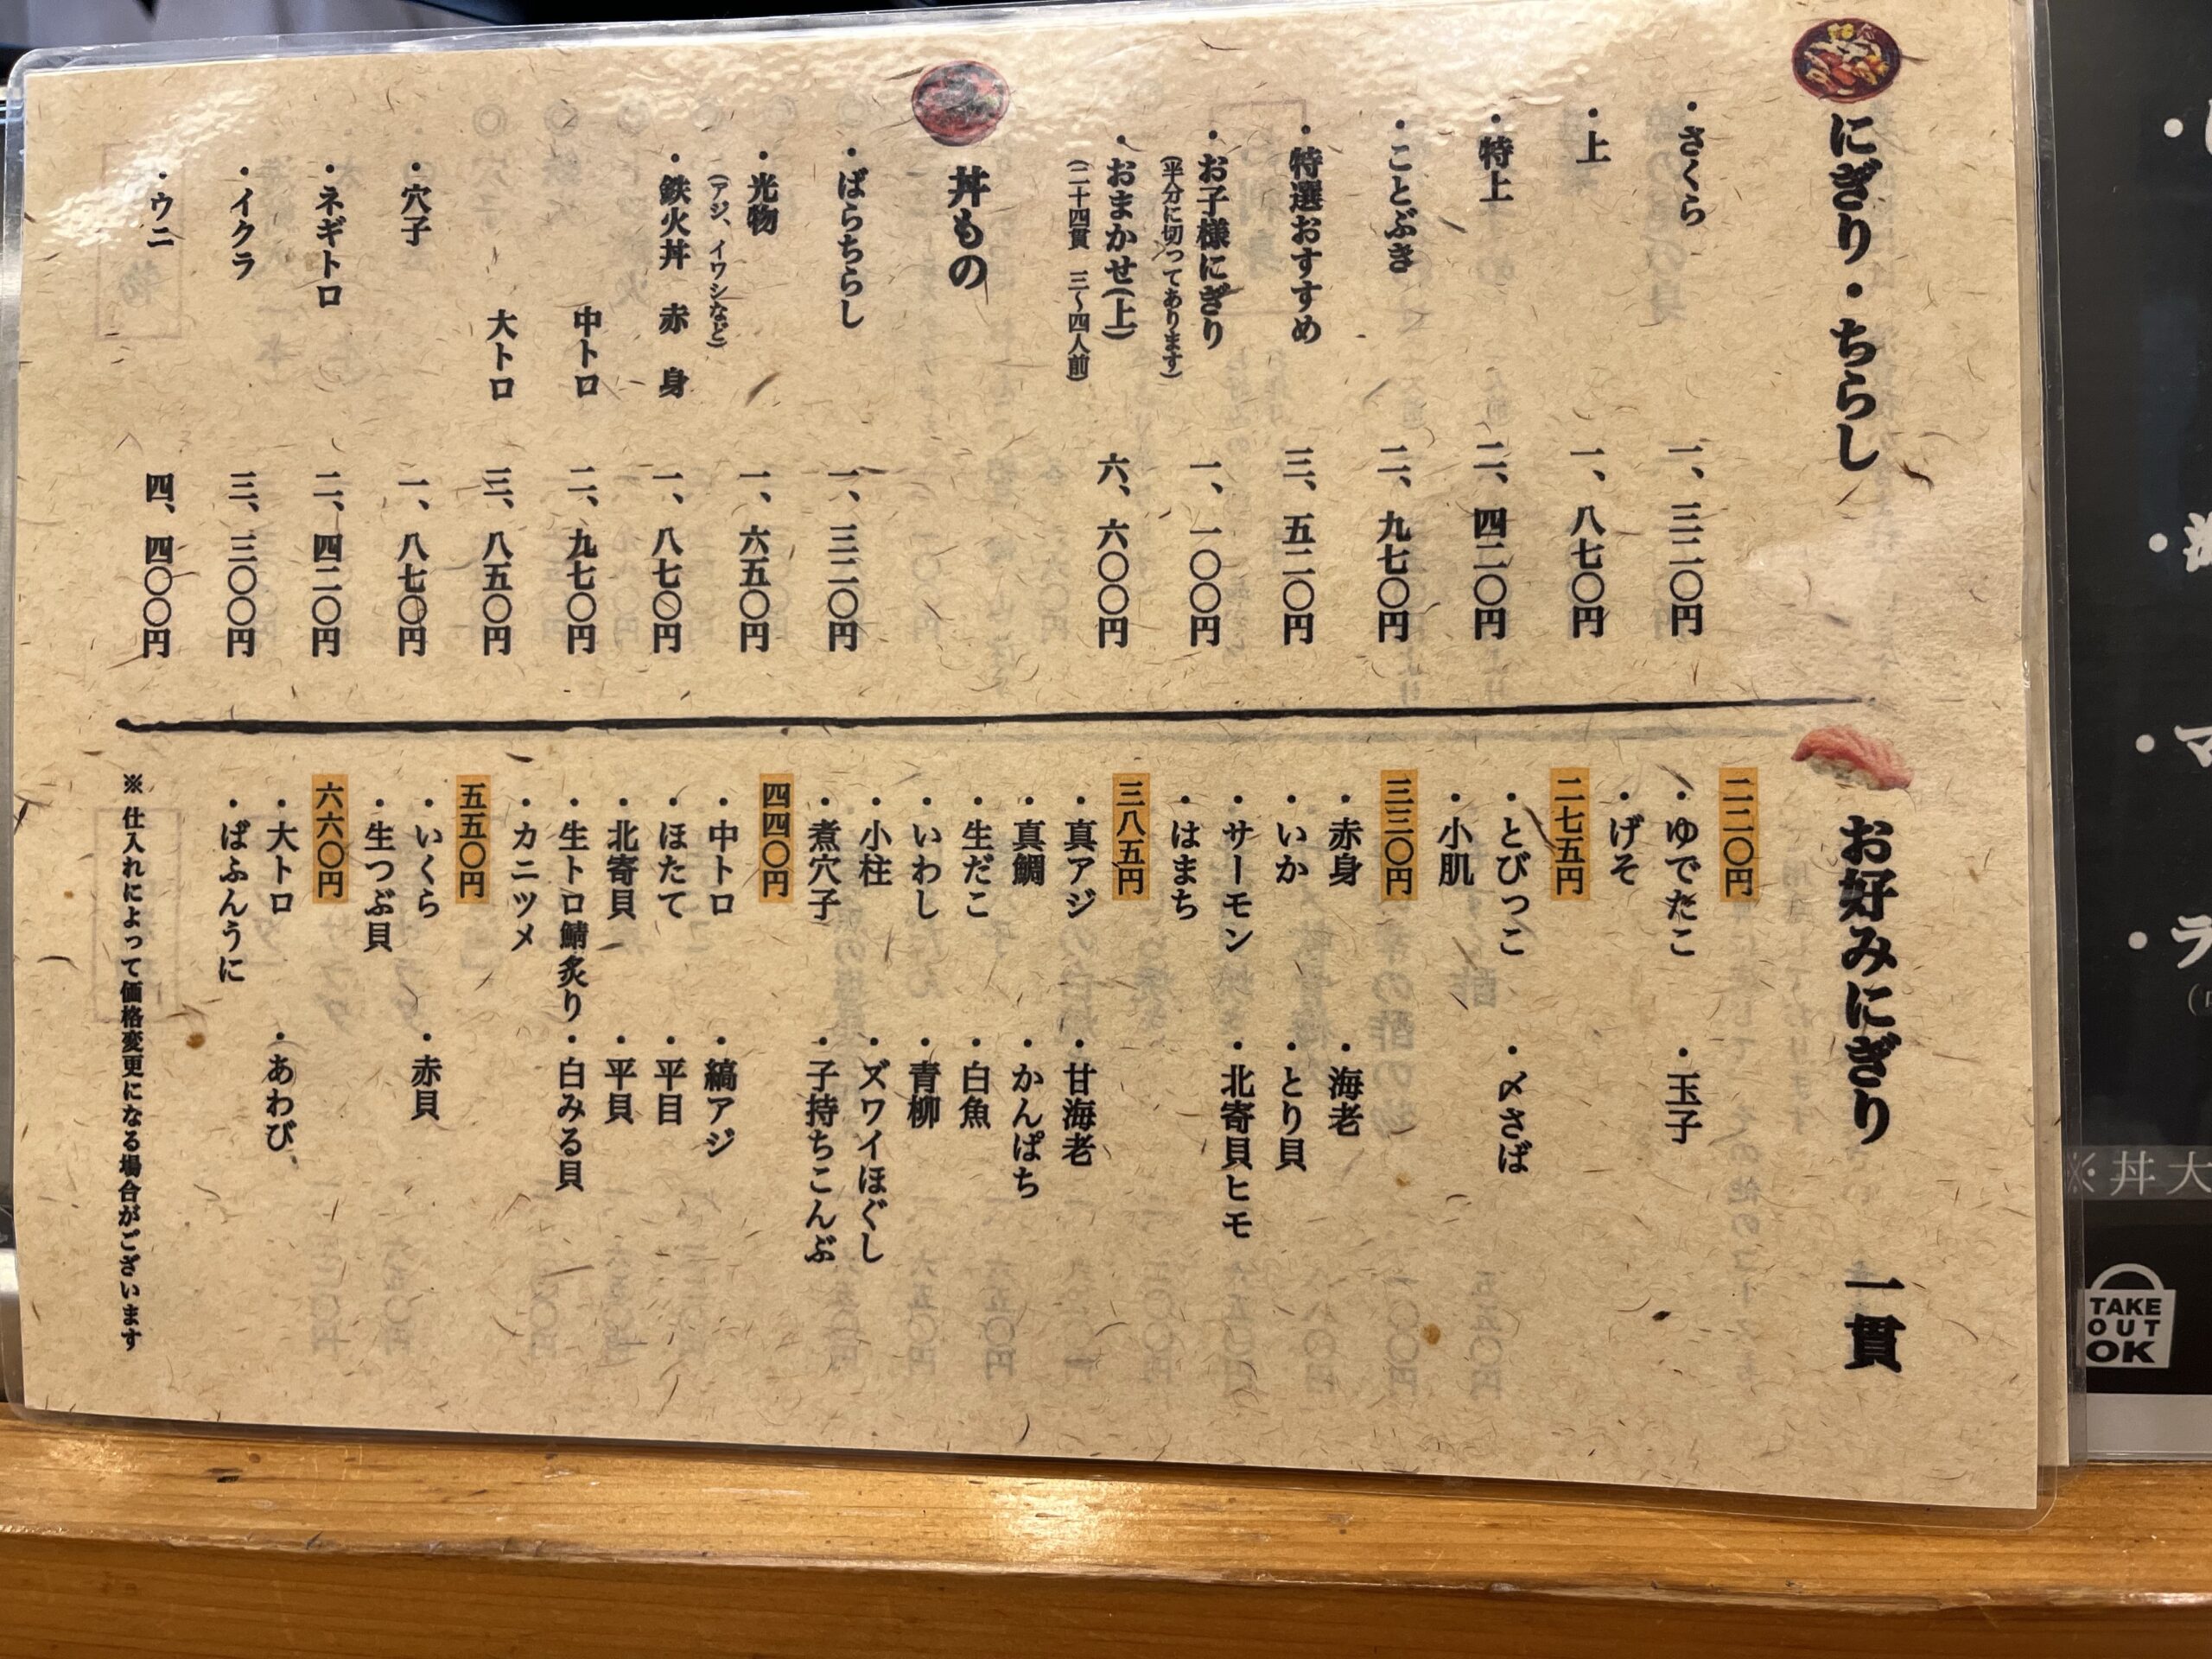 にぎり・ちらし
・さくら 一、三二〇円
・上 一、八七〇円
・特上 二、四二〇円
・ことぶき 二、九七〇円
・特選おすすめ 三、五二〇円
・お子様にぎり 一、一〇〇円
(平分に切ってあります)
・おまかせ(上) 六、六〇〇円
(二十四貫 三〜四人前)
丼もの
・ばらちらし 一、三二〇円
・光物 一、六五〇円
(アジ、イワシなど)
・鉄火丼 赤 身 一、八七〇円
中トロ 二、九七〇円
大トロ 三、八五〇円
・穴子 一、八七〇円
・ネギトロ 二、四二〇円
・イクラ 三、三〇〇円
・ウニ 四、四〇〇円
お好みにぎり 一貫
二二〇円
・ゆでたこ ・玉子
・げそ
二七五円
・とびっこ ・〆さば
・小肌
三三〇円
・赤身 ・海老
・いか ・とり貝
・サーモン ・北寄貝ヒモ
・はまち
三八五円
・真アジ ・甘海老
・真鯛 ・かんぱち
・生だこ ・白魚
・いわし ・青柳
・小柱 ・ズワイほぐし
・煮穴子 ・子持ちこんぶ
四四〇円
・中トロ ・縞アジ
・ほたて ・平目
・北寄貝 ・平貝
・生トロ鯖炙り ・白みる貝
・カニツメ
五五〇円
・いくら ・赤貝
・生つぶ貝
六六〇円
・大トロ ・あわび
・ばふんうに
※ 仕入れによって価格変更になる場合がございます
※丼大
TAKE
OUT
OK